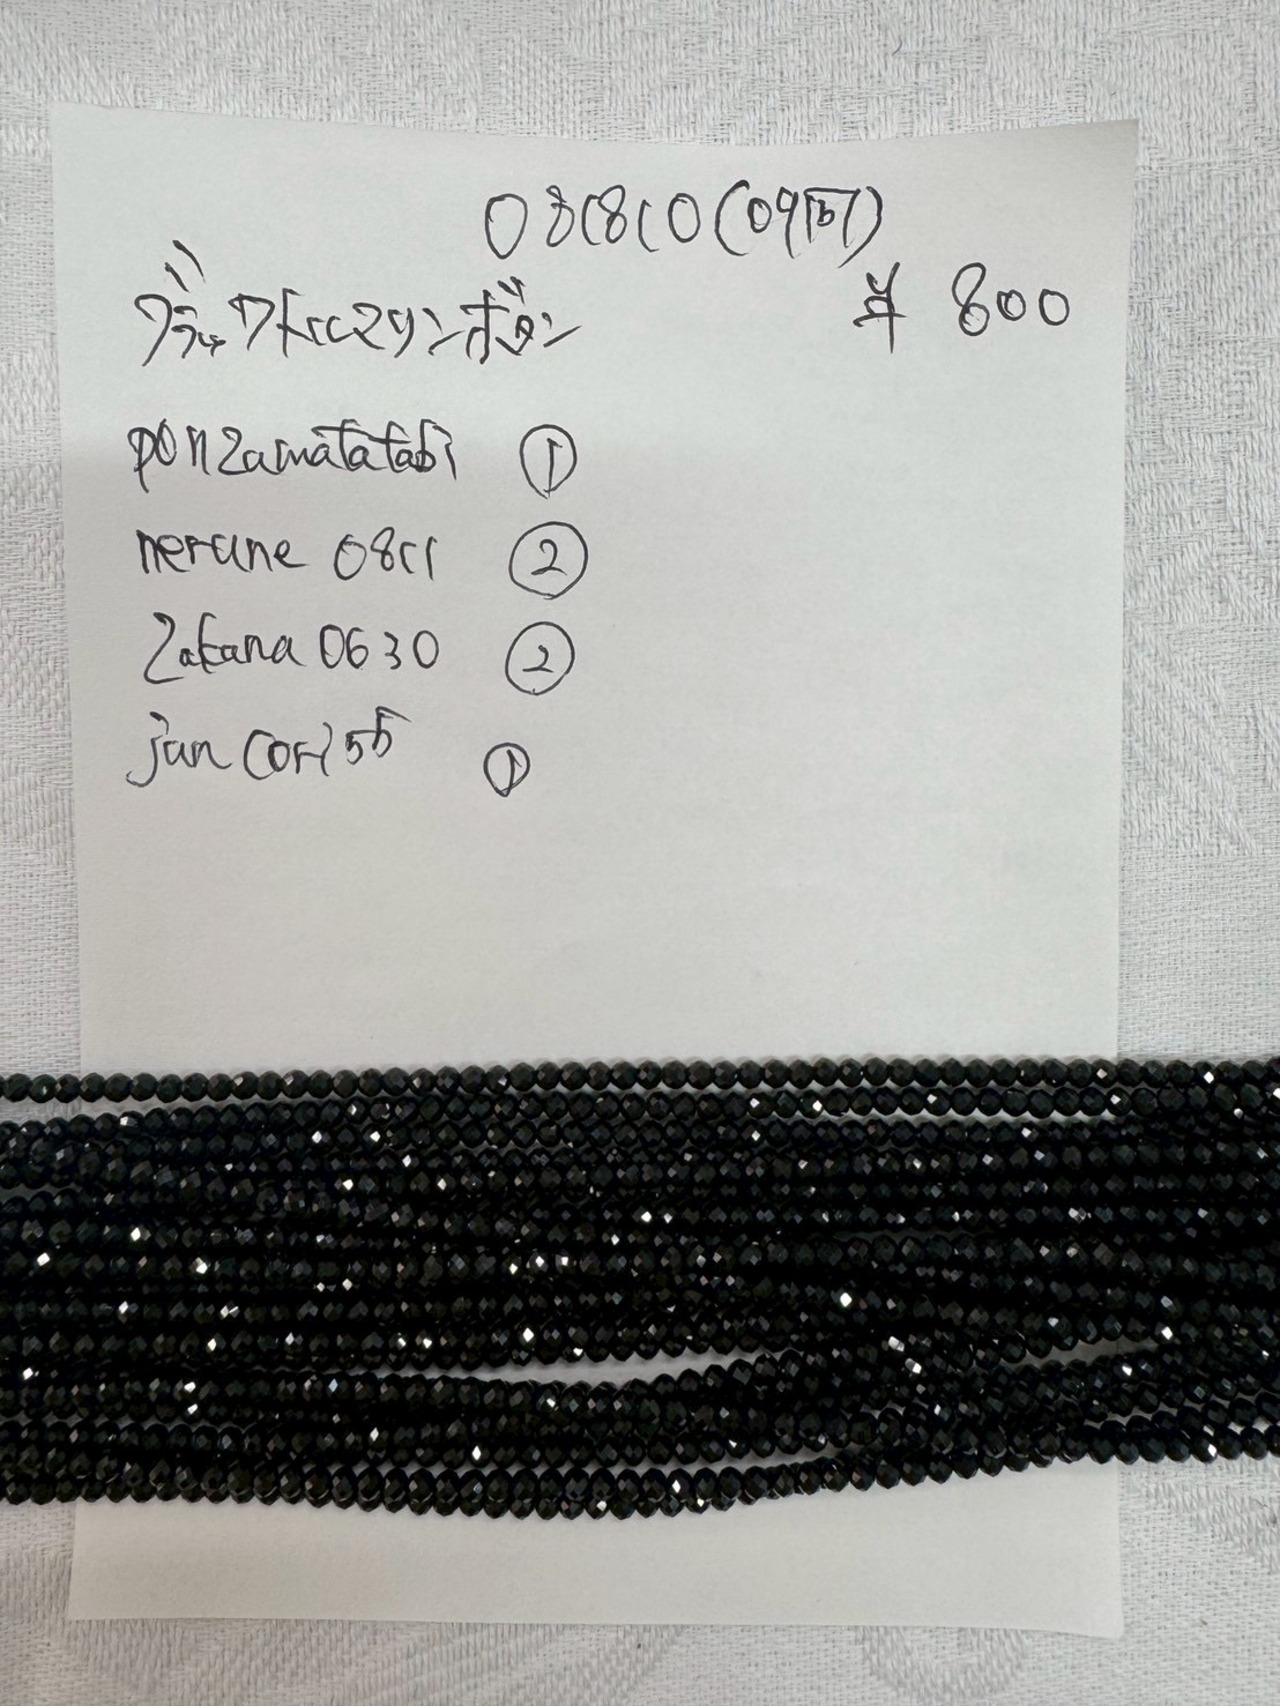 081810(0915)
¥ 800
ponzamatatabi ①
nerune 0811 ②
Zakana 0630 ②
jun cori 55 ①